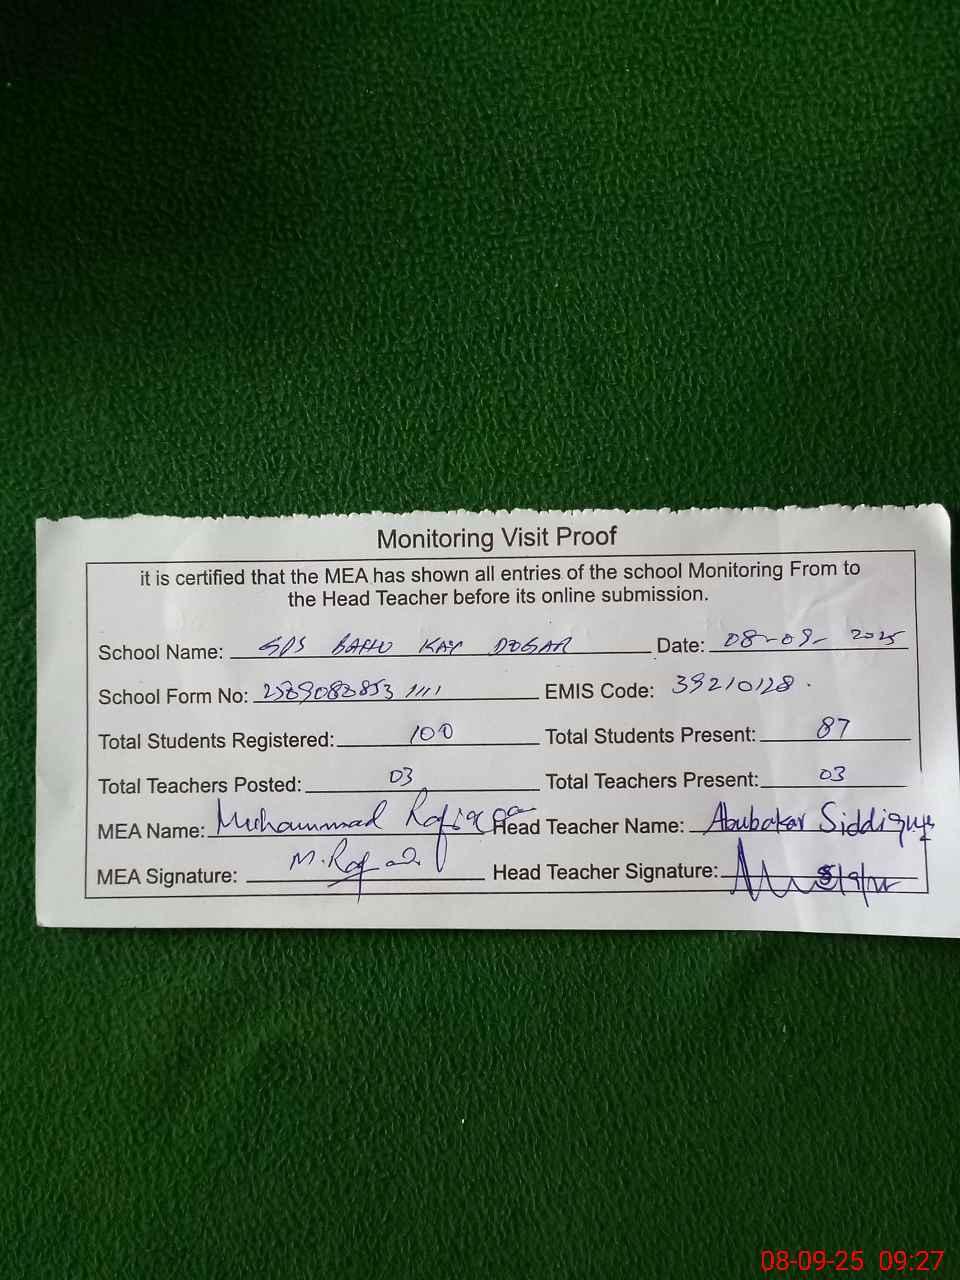 Monitoring Visit Proof
it is certified that the MEA has shown all entries of the school Monitoring From to
the Head Teacher before its online submission.
School Name: GPS BAHU KAY DOGAR Date: 08-09-2025
School Form No: EMIS Code: 39210128
Total Students Registered: 100 Total Students Present: 87
Total Teachers Posted: 03 Total Teachers Present: 03
MEA Name: Muhammad Head Teacher Name: Abubakar Siddique
MEA Signature: Head Teacher Signature:
08-09-25 09:27